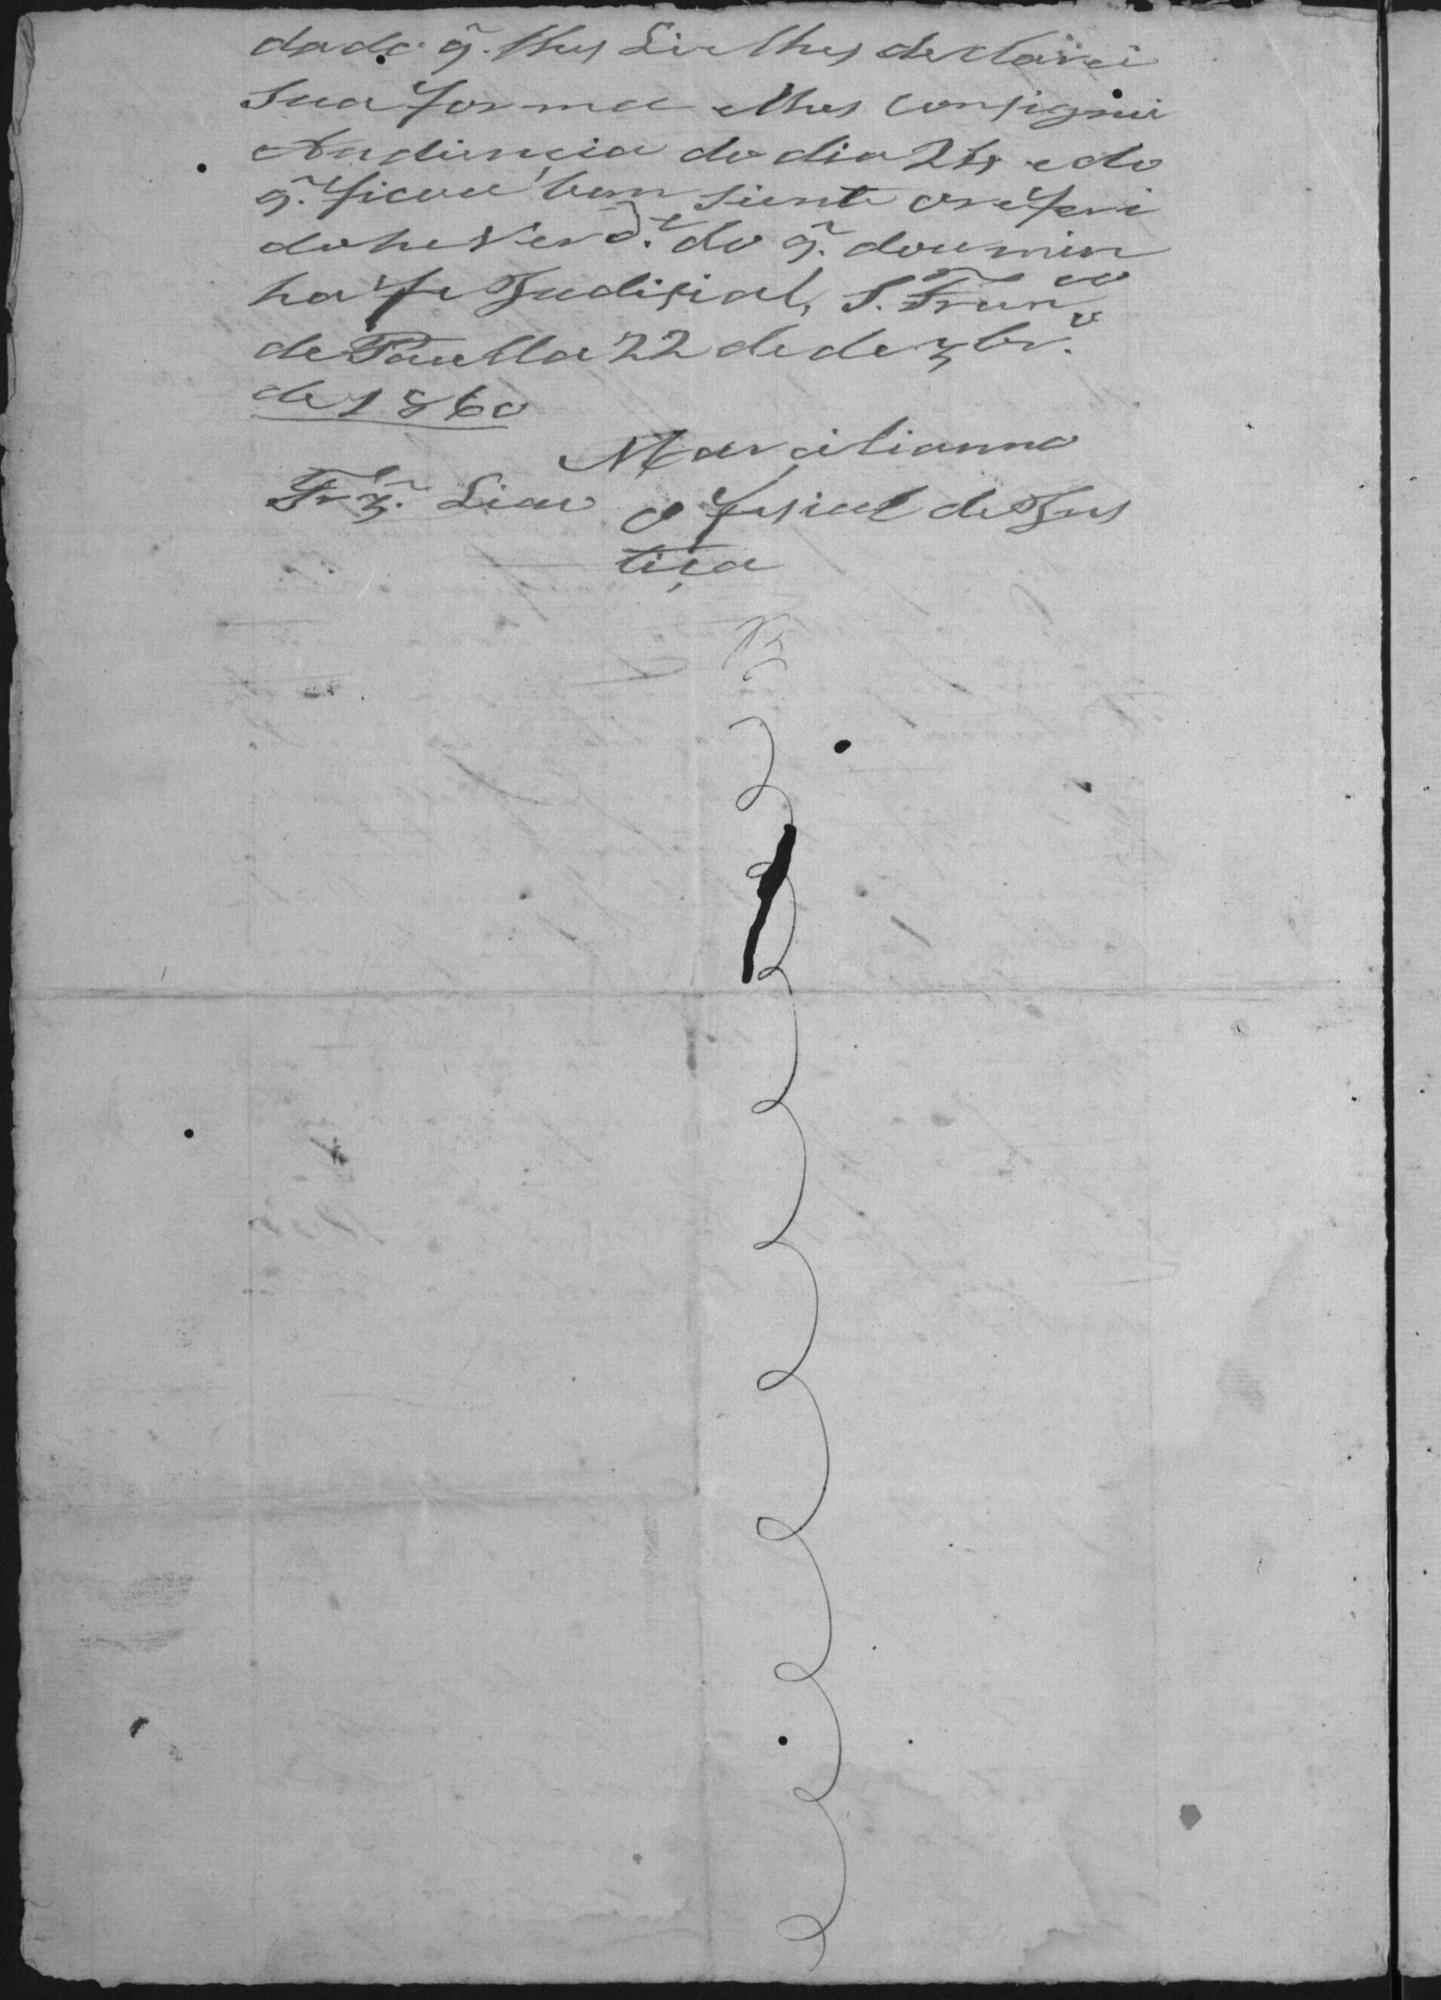 dado q̃. lhes Li e lhes declarei
Sua forma e lhes Consignei
Audiencia do dia 24 e do
q̃. ficou bem siente o referi
do he Verd.e do q̃. dou min
ha fe Judisial, S. Franco
de Paulla 22 de dezbr.o
de 1860
Marcilianno
Frz̃. Liao Ofesial de Jus
tiça